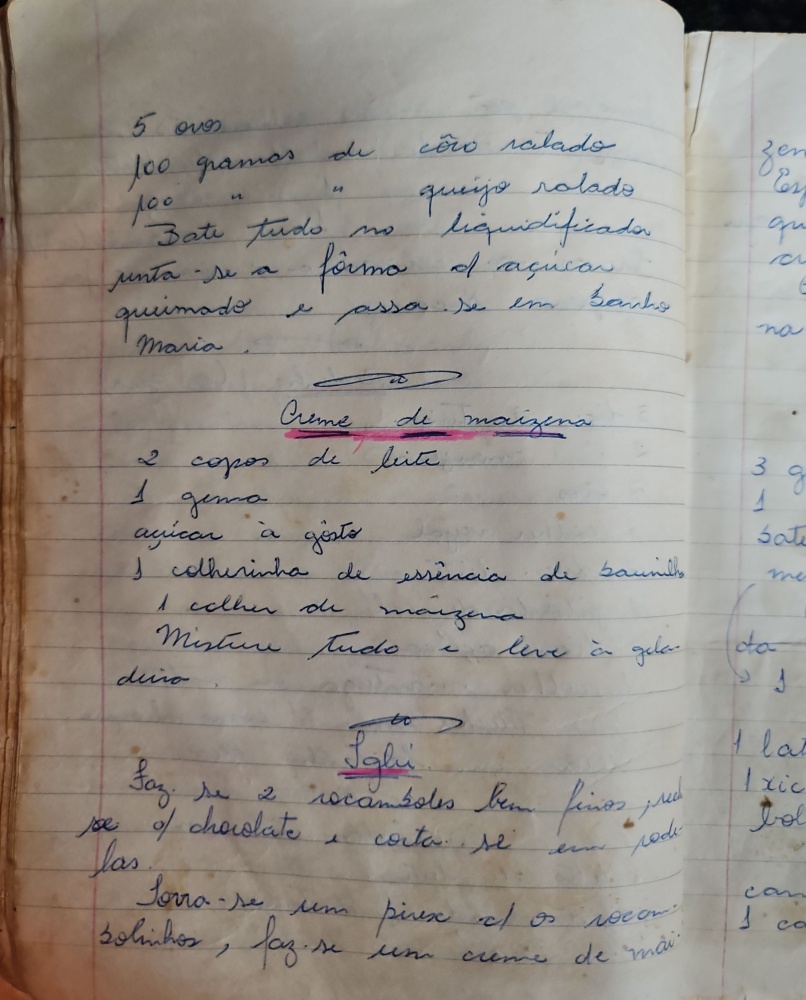 5 ovos
100 gramas de côco ralado
100 " " queijo ralado
Bate tudo no liquidificador
unta-se a fôrma c/ açúcar
queimado e assa-se em banho
Maria.
Creme de maizena
2 copos de leite
1 gema
açúcar à gôsto
1 colherinha de essência de baunilha
1 colher de maizena
Misture tudo e leve à gela-
deira.
Iglú
Faz-se 2 rocamboles bem finos,
se c/ chocolate e corta-se em rode-
las.
Forra-se um pirex c/ os rocam-
bolinhos, faz-se um creme de mai-
zen
Esp
qu
na
3 g
1
bate
me
da
1
1 lat
1 xic
bol
1 co